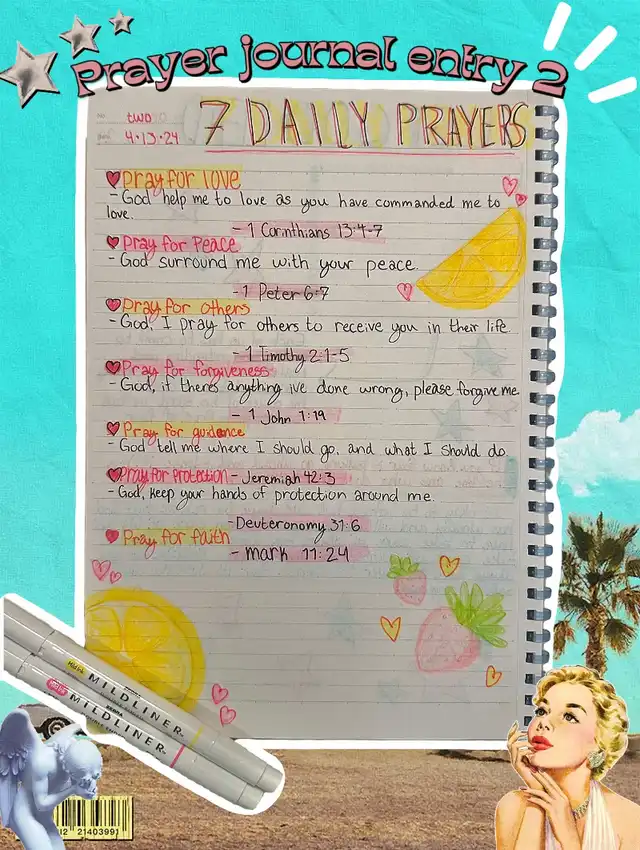 Prayer journal entry 2
No two
Date 4.13.24
7 DAILY PRAYERS
Pray for love
- God help me to love as you have commanded me to
love.
- 1 Corinthians 13:4-7
Pray for Peace
- God surround me with your peace.
- 1 Peter 6:7
Pray for others
- God, I pray for others to receive you in their life.
- 1 Timothy 2:1-5
Pray for forgiveness
- God, if theres anything ive done wrong, please forgive me
- 1 John 1:19
Pray for guidence
- God tell me where I should go, and what I should do.
Pray for Protection - Jeremiah 42:3
- God, keep your hands of protection around me.
- Deuteronomy 31:6
Pray for faith
- mark 11:24
MILDLINER
MILDLINER
12 21403991